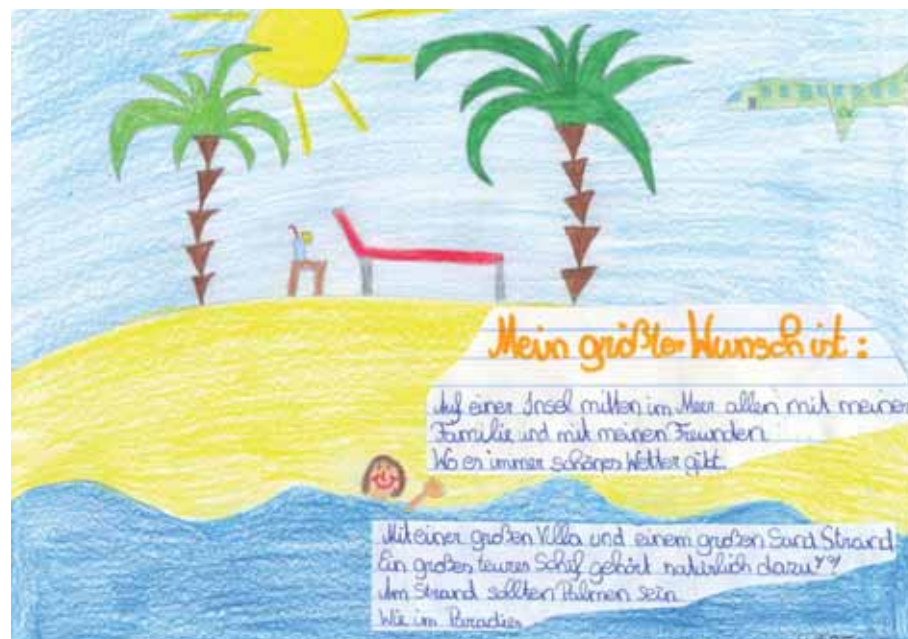 Mein größter Wunsch ist:
Auf einer Insel mitten im Meer allen mit meiner
Familie und mit meinen Freunden.
Wo es immer schönes Wetter gibt.
Mit einer großen Villa und einem großen Sand Strand
Ein großes teures Schif gehört natürlich dazu!!!
Am Strand sollten Palmen sein.
Wie im Paradies